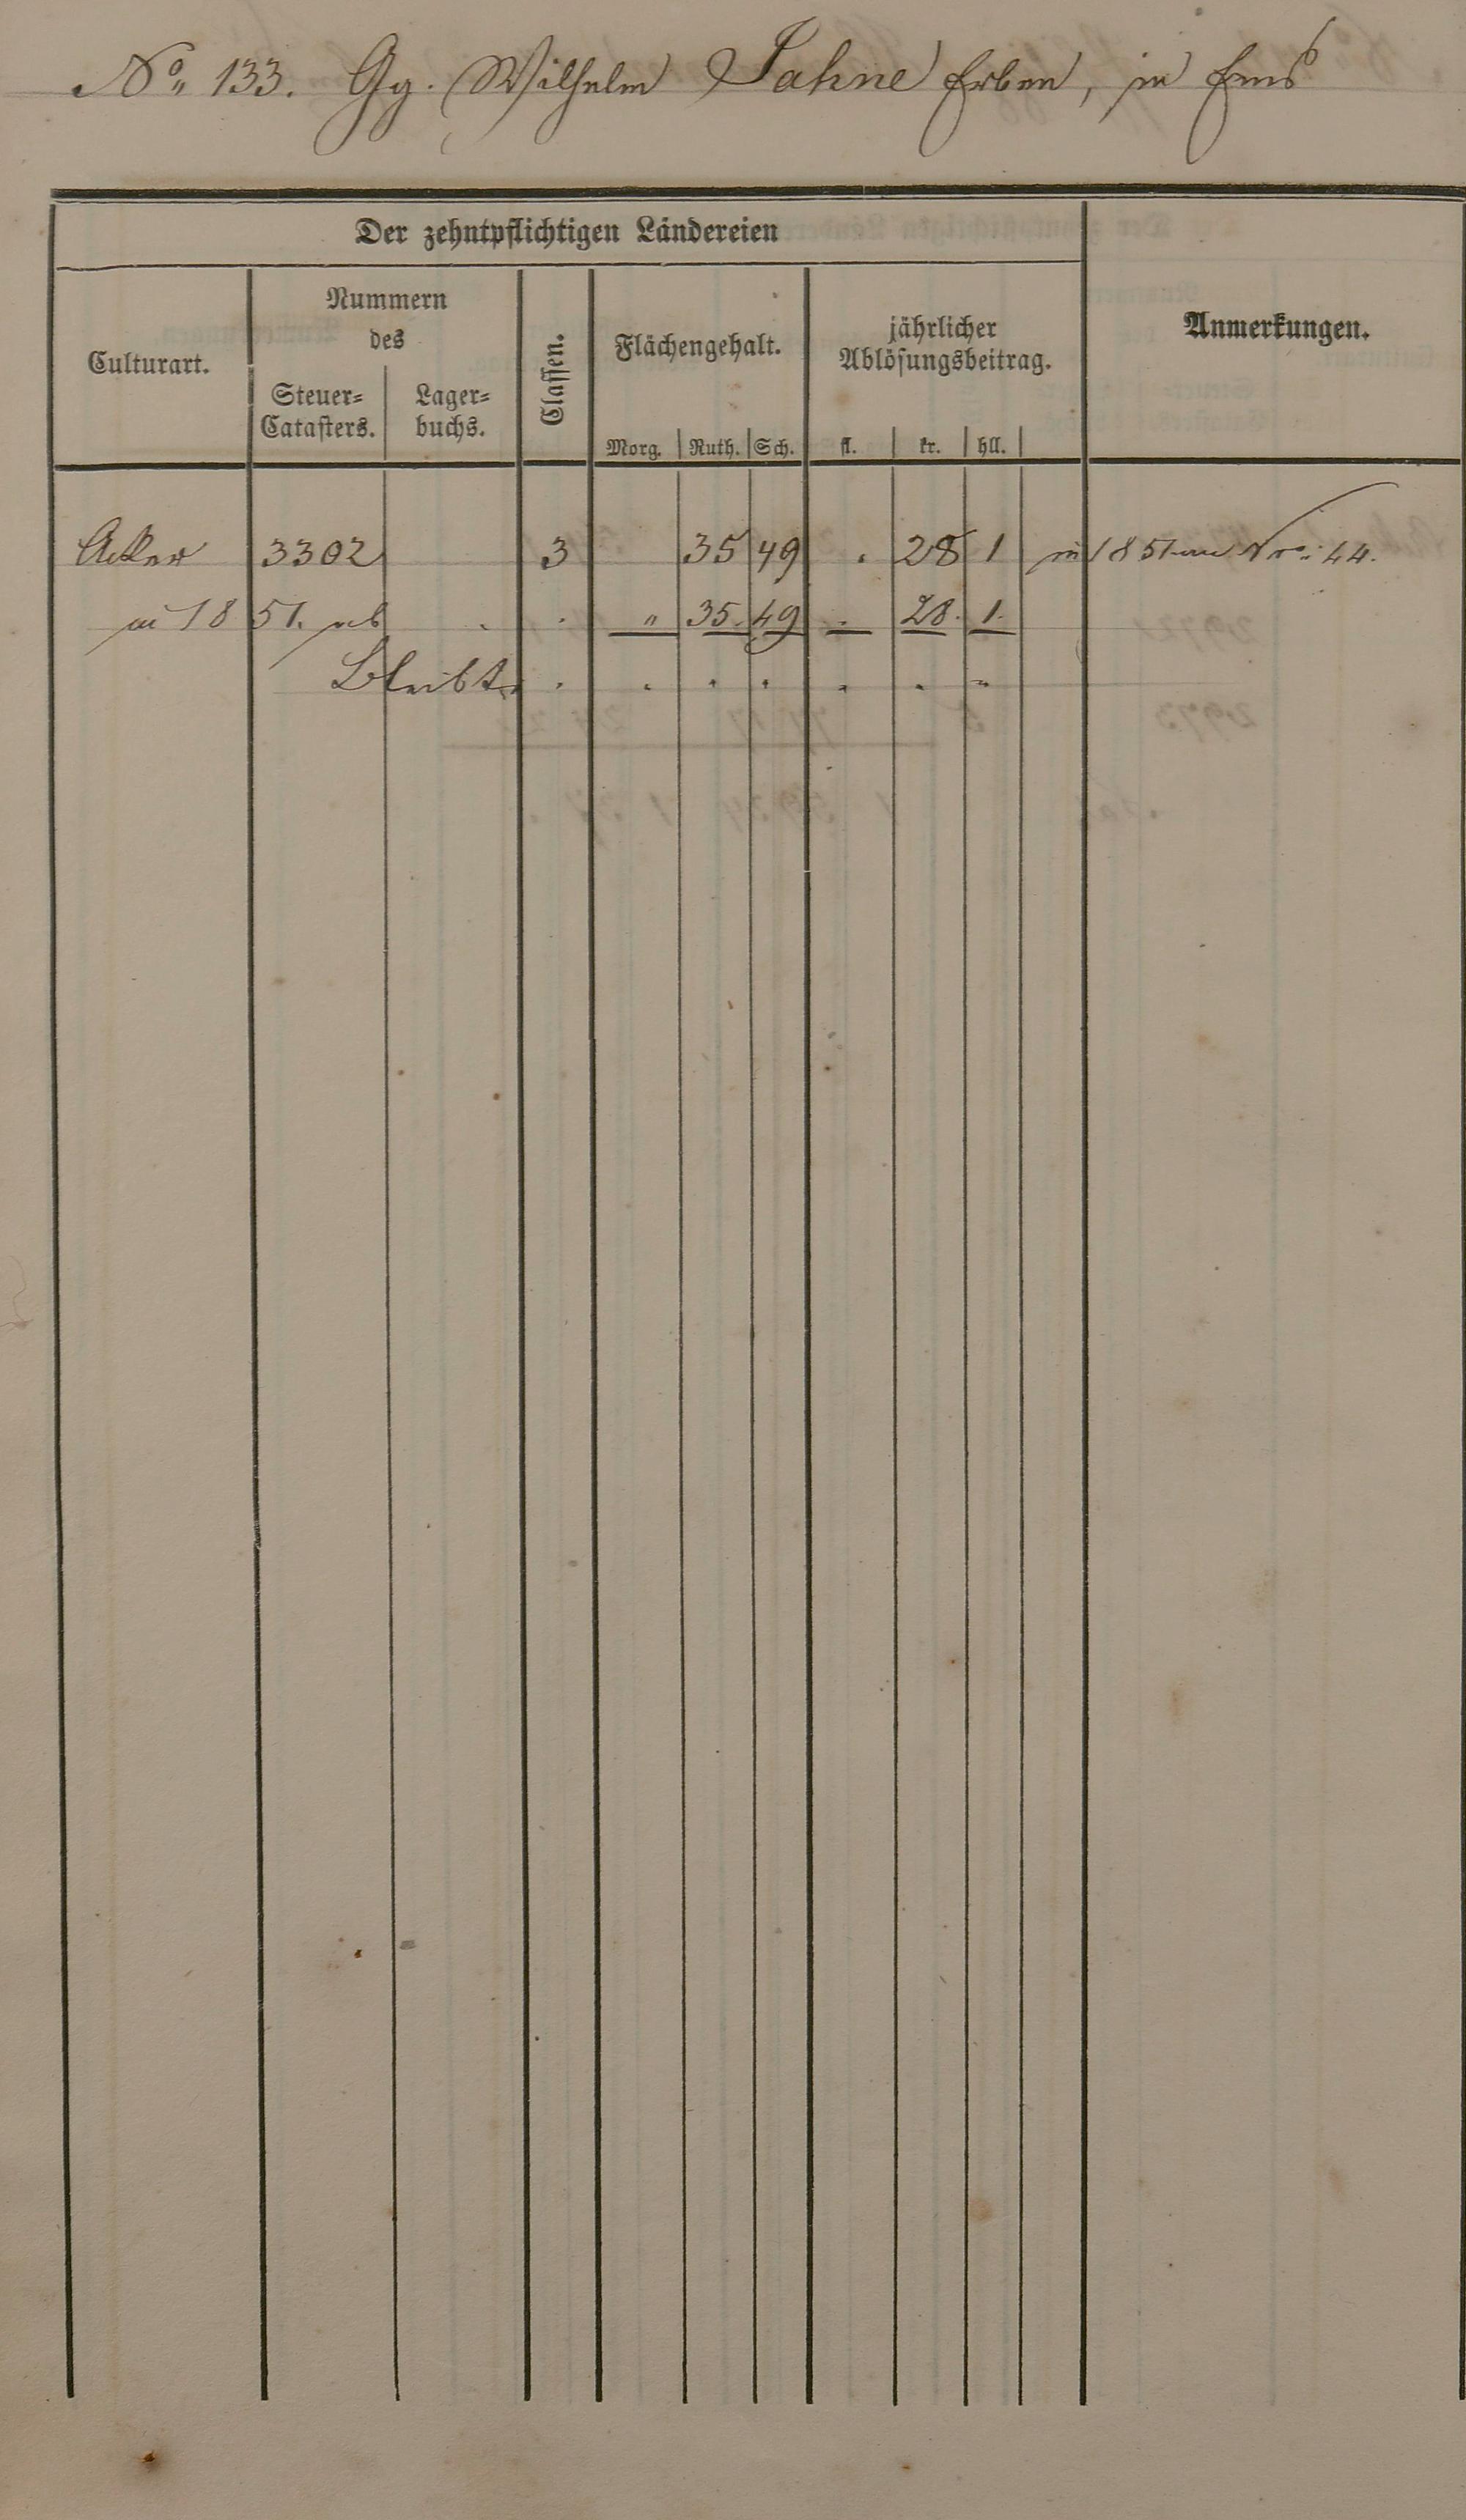 No. 133. Gg. Wilhelm Jahne Erben, in Ems
Der zehntpflichtigen Ländereien
Culturart.
Nummern
des
Steuer=
Catasters.
Lager=
buchs.
Classen.
Flächengehalt.
Morg. Ruth. Sch.
jährlicher
Ablösungsbeitrag.
fl. kr. hll.
Anmerkungen.
Acker 3302 3 35 49 . 28 1 in 1851 an Nro. 44.
in 1851. ab . . " 35. 49 . 28. 1.
Bleibt . . . . . . "